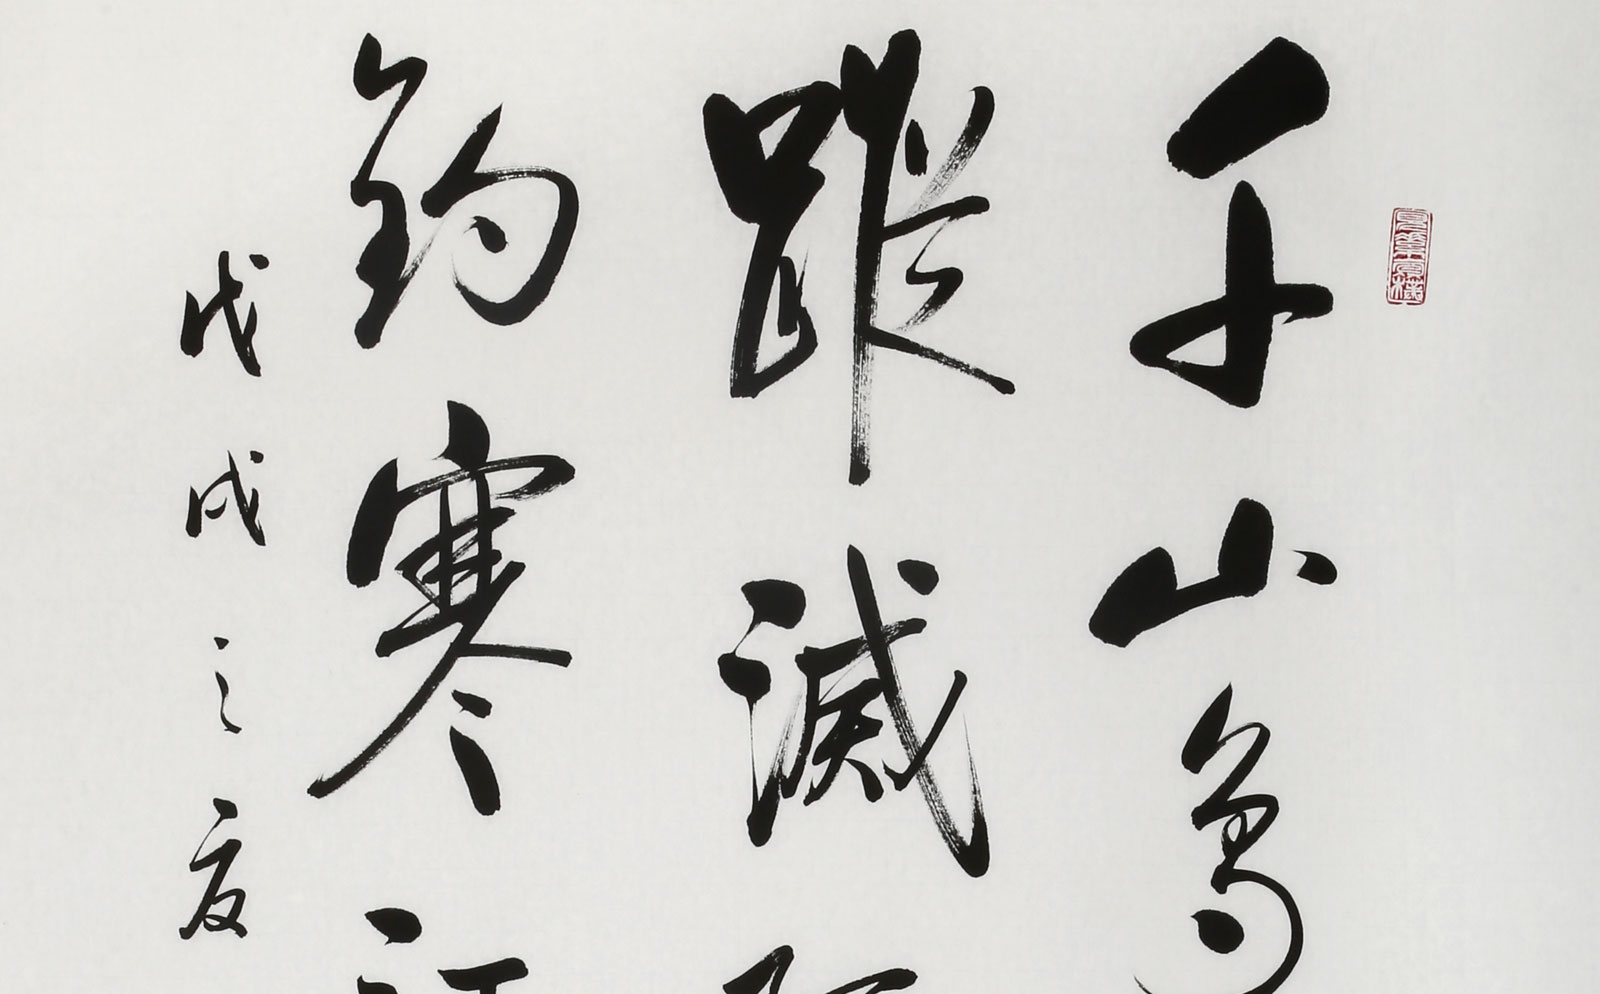 千山鳥
蹤滅
釣寒
戊戌之夏